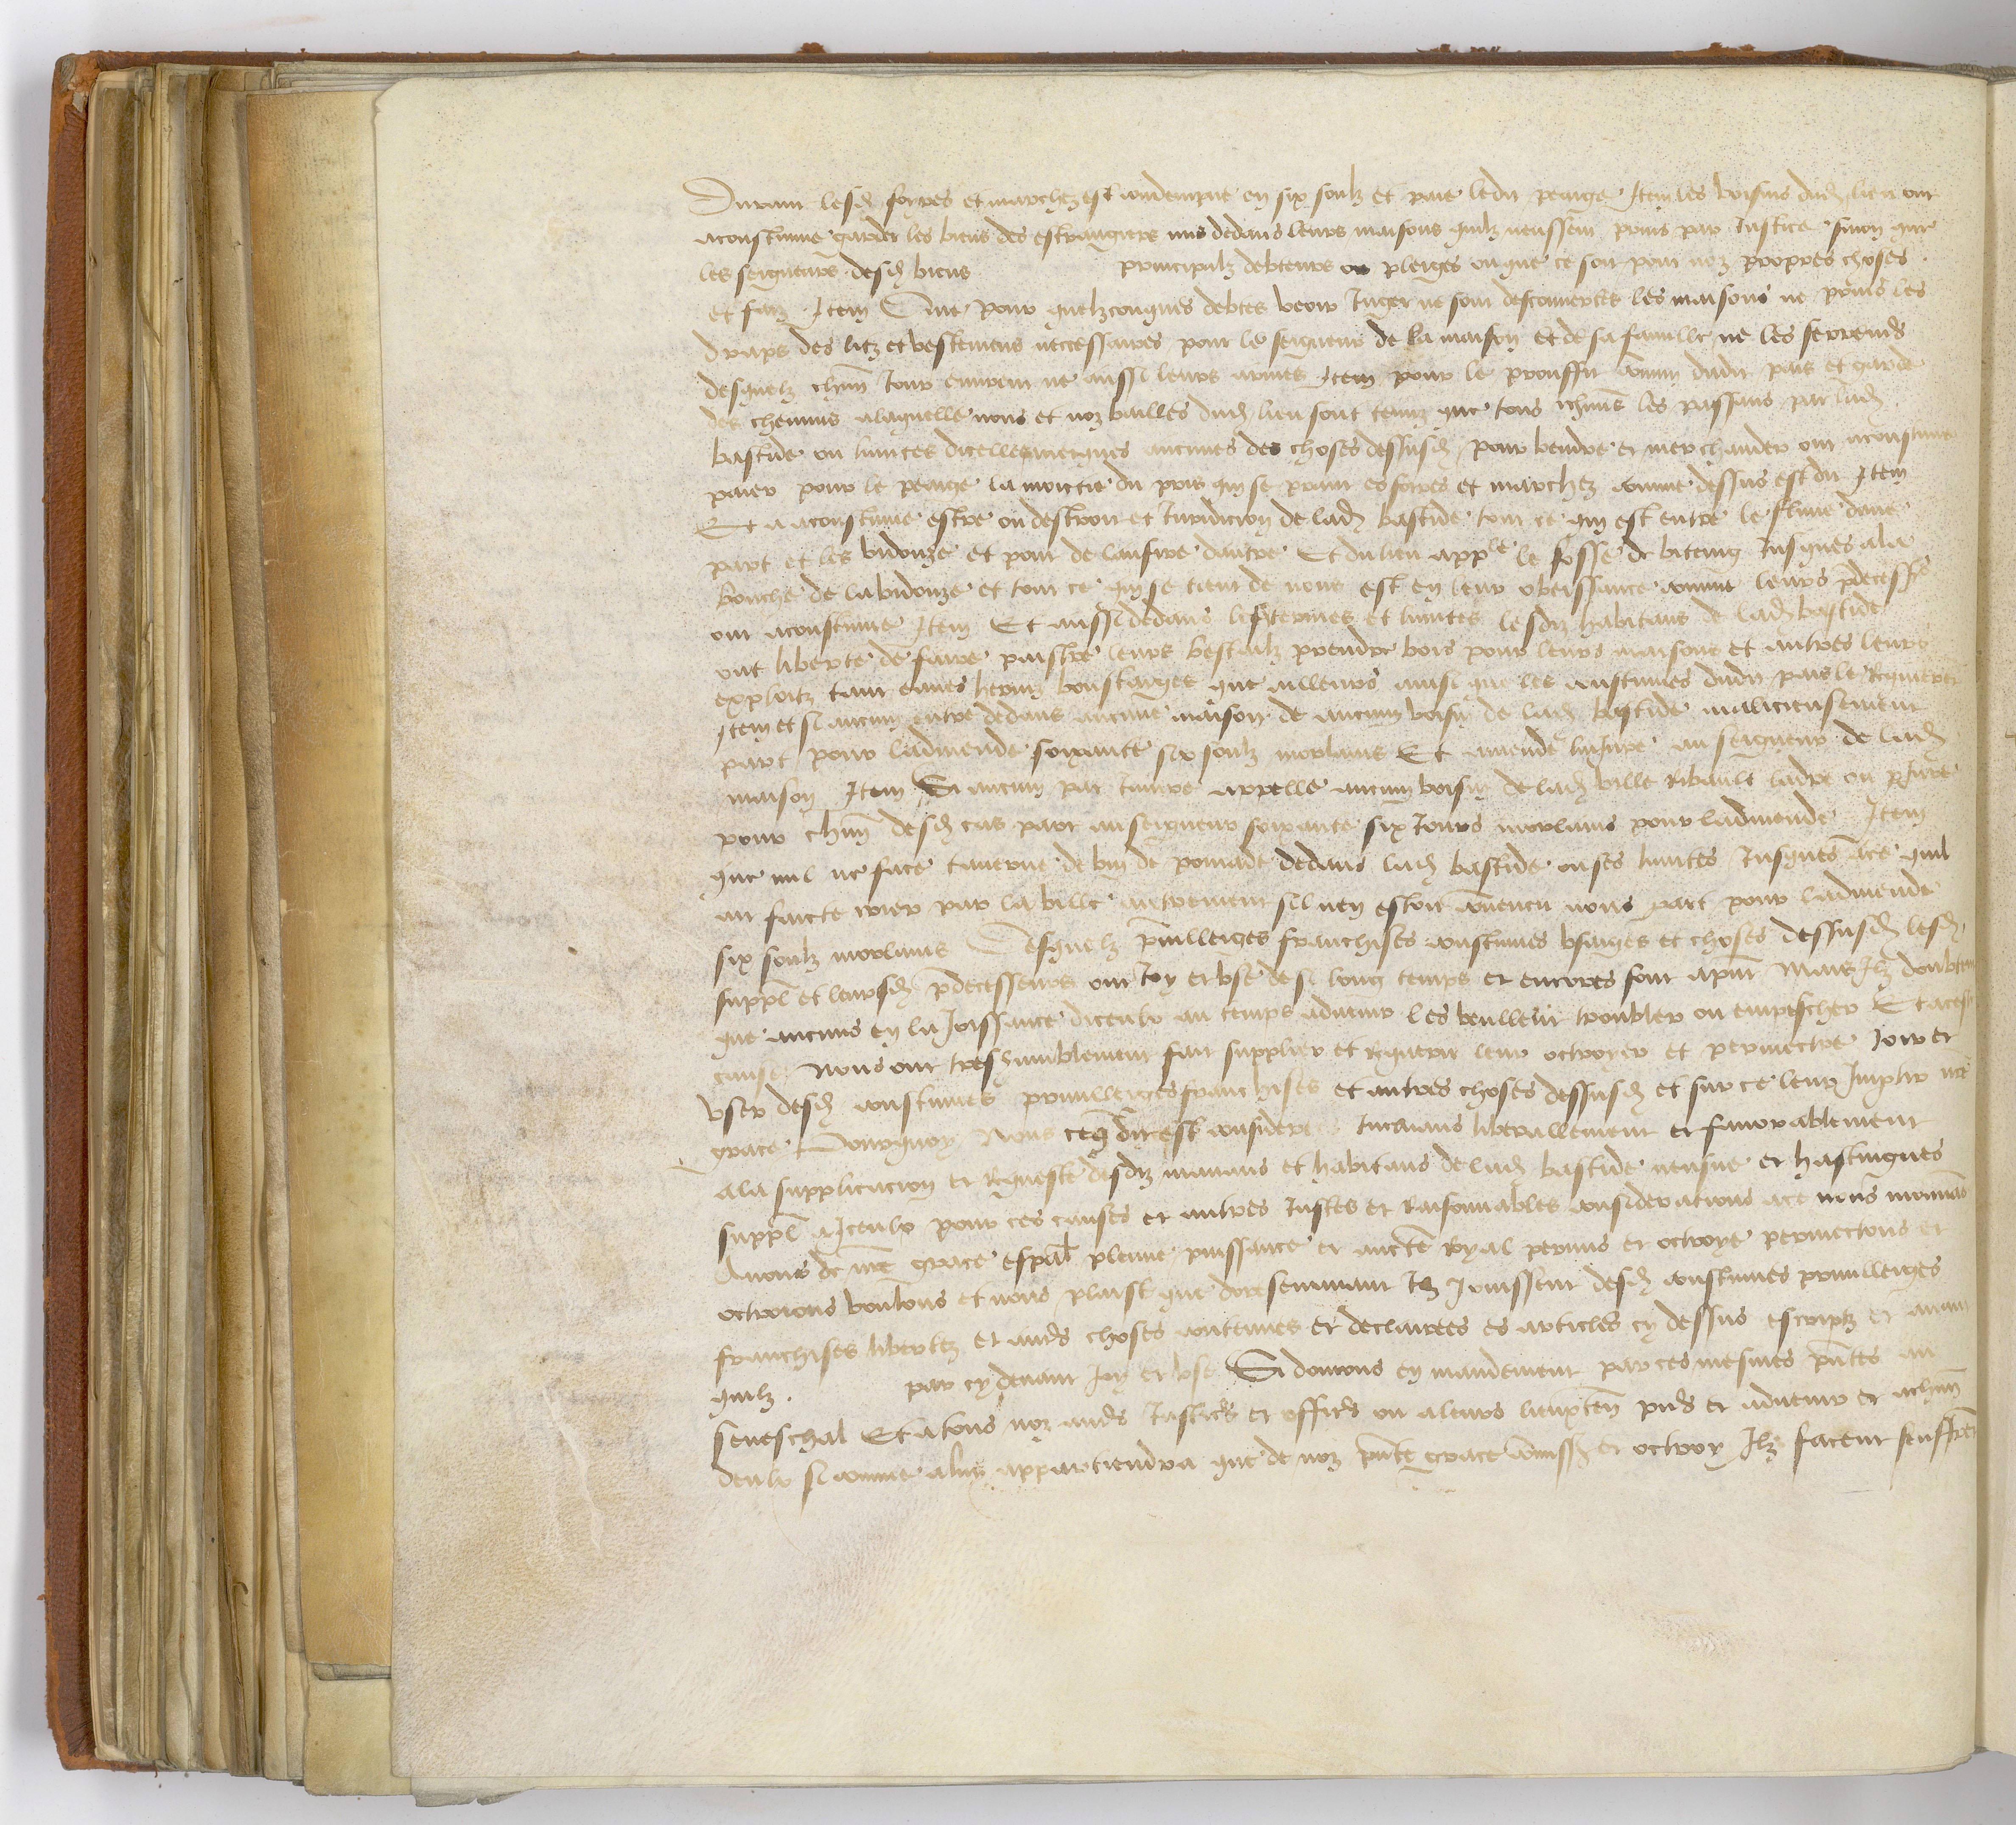 Durant lesd foyres et marchez est condempne en six soulz et paie ledit peaige Item les voisins dud lieu ont
acoustume garder les biens des estrangiers mis dedans leurs maisons quilz neussent prins par Justice sinon que
les seigneurs desd biens principalz debteurs ou pleiges ou que ce soit pour noz propres choses
et faiz Item Que pour quelzconques debtes veoir Juger ne sont descouvertes les maisons ne prins les
draps des litz et vestemens necessaires pour le seigneur de la maison et de sa famille ne les ferremens
desquelz chm Jour euvrent ne aussi leurs armes Item pour le prouffit commun dudit pais et garde
des chemins a laquelle nous et noz bailles dud lieu sont tenuz que tous les passans par lad
bastide ou limites dicelle aucunes des choses dessusd pour vendre et marchander ont acoustume
paier pour le peaige la moictie du pris qui se prent es foires et marchez comme dessus est dit Item
Et a acoustume estre ou destroit et Juridicion de lad bastide tout ce qui est entre le fluve dune
part et les vidouze et pont de dautre Et du lieu appelle le fosse de Jusques a la
bouche de la vidouze et tout ce qui se tient de nous est en leur obeissance comme leurs predecessrs
ont acoustume Item Et aussi dedans les termes et limites lesdiz habitans de lad bastide
ont liberte de faire paistre leurs bestialz prendre bois pour leurs maisons et autres leurs
exploitz tant que ailleurs ainsi que les coustumes dudit pais le Requierent
Item et si aucun entre dedans aucune maison de aucun voisin de lad bastide malicieusement
part pour ladmende soixante six soulz morlans Et amende linjure au seigneur de lad
maison Item Si aucun par Injure appelle aucun voisin de lad ville Ribault ladre ou
pour chm desd cas part au seigneur soixante six morlans pour ladmende Item
que nul ne face taverne de vin de pomade dedans lad bastide ou ses limites Jusques a ce quil
ait faicte crier par la ville autrement sil nen estoit convencu nous part pour ladmende
six soulz morlans Desquelz privilleiges franchises coustumes usaiges et choses dessusd lesd
suppl et leursd predecesseurs ont Joy et use de si long temps et encores font apnt Mais Ilz doubtent
que aucuns en la Joissance diceulx au temps advenir les veullent troubler ou empescher Et a ceste
cause Nous ont treshumblement fait supplier et Requerir leur octroyer et permectre Joir et
user desd coustumes privilleiges franchises et autres choses dessusd et sur ce leur Impartir nre
grace Pourquoy Nous ce que dit est considere Inclinans liberallement et favorablement
a la supplicacion et Requeste desdiz manans et habitans de lad bastide neufve et hastingues
suppl a Iceulx pour ces causes et autres Justes et Raisonnables consideracions a ce nous mouvans
Avons de nre grace espal plenne puissance et aucte Royal permis et octroye permectons et
octroions voulons et nous plaist que doresenavant Ilz Jouissent desd coustumes privilleiges
franchises libertez et autrs choses contenues et declairees es articles cy dessus escriptz et avant
quilz par cy devant Joy et use Si donnons en mandement par ces mesmes pntes au
seneschal Et a tous noz autrs Justicrs et officrs ou a leurs lieuxten pns et advenir et a chm
deulx si comme a luy appartiendra que de noz pnte grace et octroy Ilz facent seuffrent